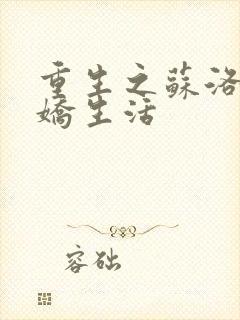 重生之蘇洛
嬌生活
容础